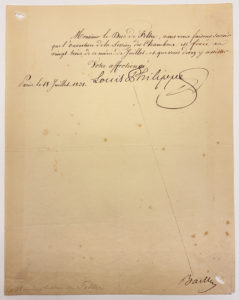 Monsieur le Duc de Feltre, nous vous faisons savoir
que l'ouverture de la Session des Chambres est fixée au
vingt trois de ce mois de Juillet, et que vous devez y assister.
Votre affectionné
Paris, le 18 Juillet, 1831.
Louis Philippe